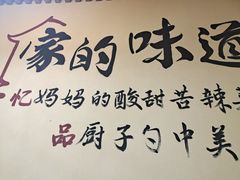 家的味道
忆妈妈的酸甜苦辣
品厨子勺中美